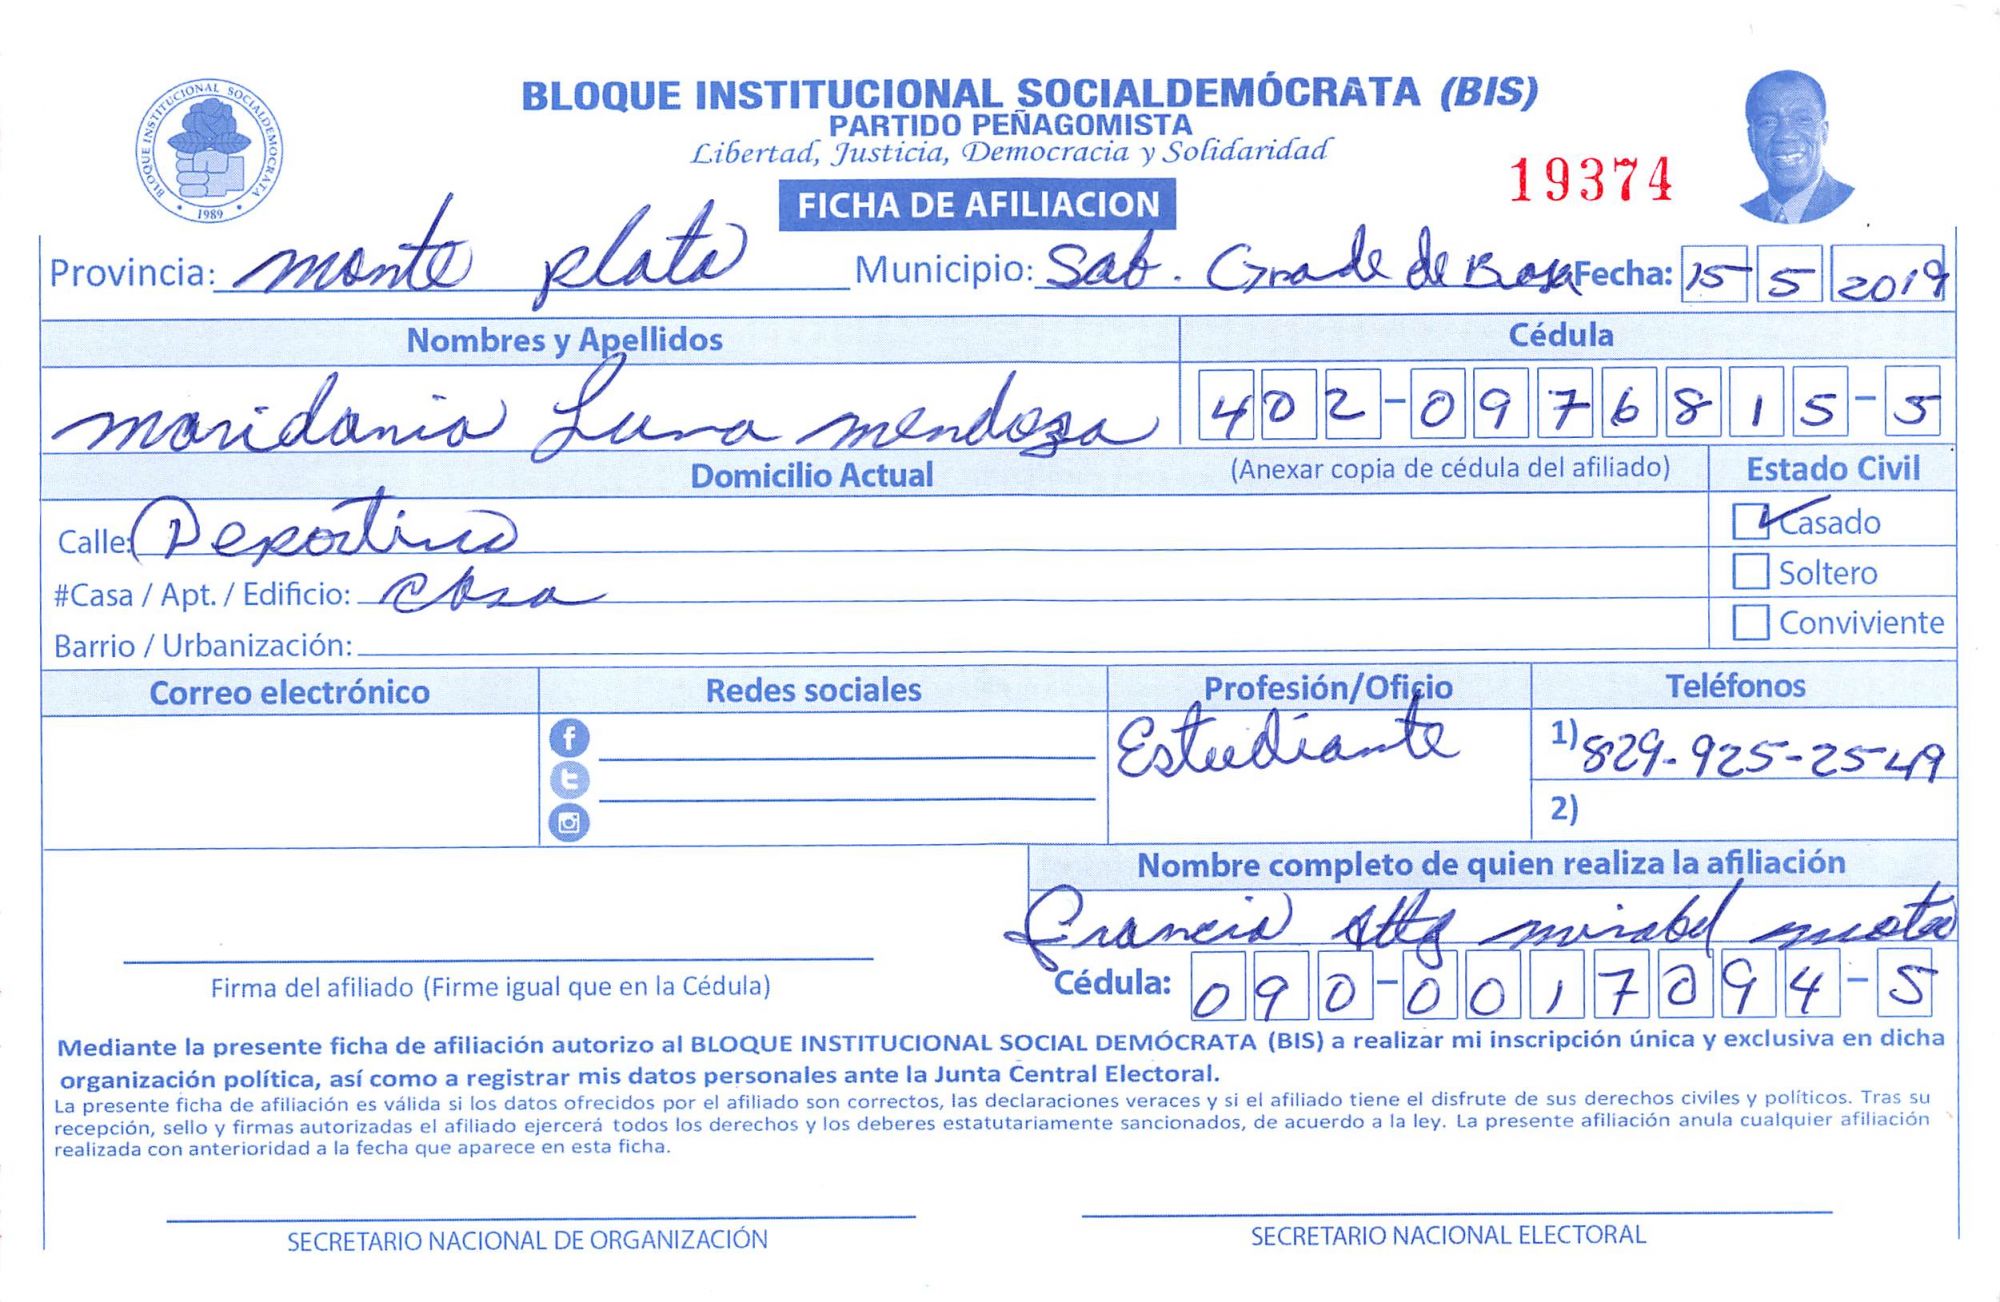 BLOQUE INSTITUCIONAL SOCIALDEMOCRATA
1989
BLOQUE INSTITUCIONAL SOCIALDEMÓCRATA (BIS)
PARTIDO PEÑAGOMISTA
Libertad, Justicia, Democracia y Solidaridad
19374
FICHA DE AFILIACION
Provincia: monte plata Municipio: Sab. Grade de Boya Fecha: 15 5 2019
Nombres y Apellidos Cédula
maridania Luna mendoza 402-0976815-5
Domicilio Actual (Anexar copia de cédula del afiliado) Estado Civil
Calle: Deportiva Casado
#Casa / Apt. / Edificio: casa Soltero
Barrio / Urbanización: Conviviente
Correo electrónico Redes sociales Profesión/Oficio Teléfonos
Estudiante 1) 829-925-2549
2)
Nombre completo de quien realiza la afiliación
Francia mirabel
Cédula: 090-0017094-5
Firma del afiliado (Firme igual que en la Cédula)
Mediante la presente ficha de afiliación autorizo al BLOQUE INSTITUCIONAL SOCIAL DEMÓCRATA (BIS) a realizar mi inscripción única y exclusiva en dicha
organización política, así como a registrar mis datos personales ante la Junta Central Electoral.
La presente ficha de afiliación es válida si los datos ofrecidos por el afiliado son correctos, las declaraciones veraces y si el afiliado tiene el disfrute de sus derechos civiles y políticos. Tras su
recepción, sello y firmas autorizadas el afiliado ejercerá todos los derechos y los deberes estatutariamente sancionados, de acuerdo a la ley. La presente afiliación anula cualquier afiliación
realizada con anterioridad a la fecha que aparece en esta ficha.
SECRETARIO NACIONAL DE ORGANIZACIÓN SECRETARIO NACIONAL ELECTORAL